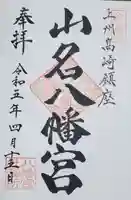 上州高崎鎮座
山名八幡宮
奉拝
令和五年四月十五日